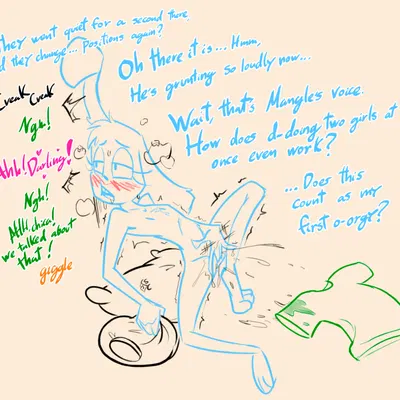 They went quiet for a second there
d they change... Positions again?
Oh there it is... Hmm,
He's grunting so loudly now...
Wait, that's Mangle's voice.
How does d-doing two girls at
once even work?
... Does this
count as my
first o-orgy?
Creak Creak
Ngh!
Ahh! Darling!
Ngh!
Ahh, chica!
we talked about
that!
giggle